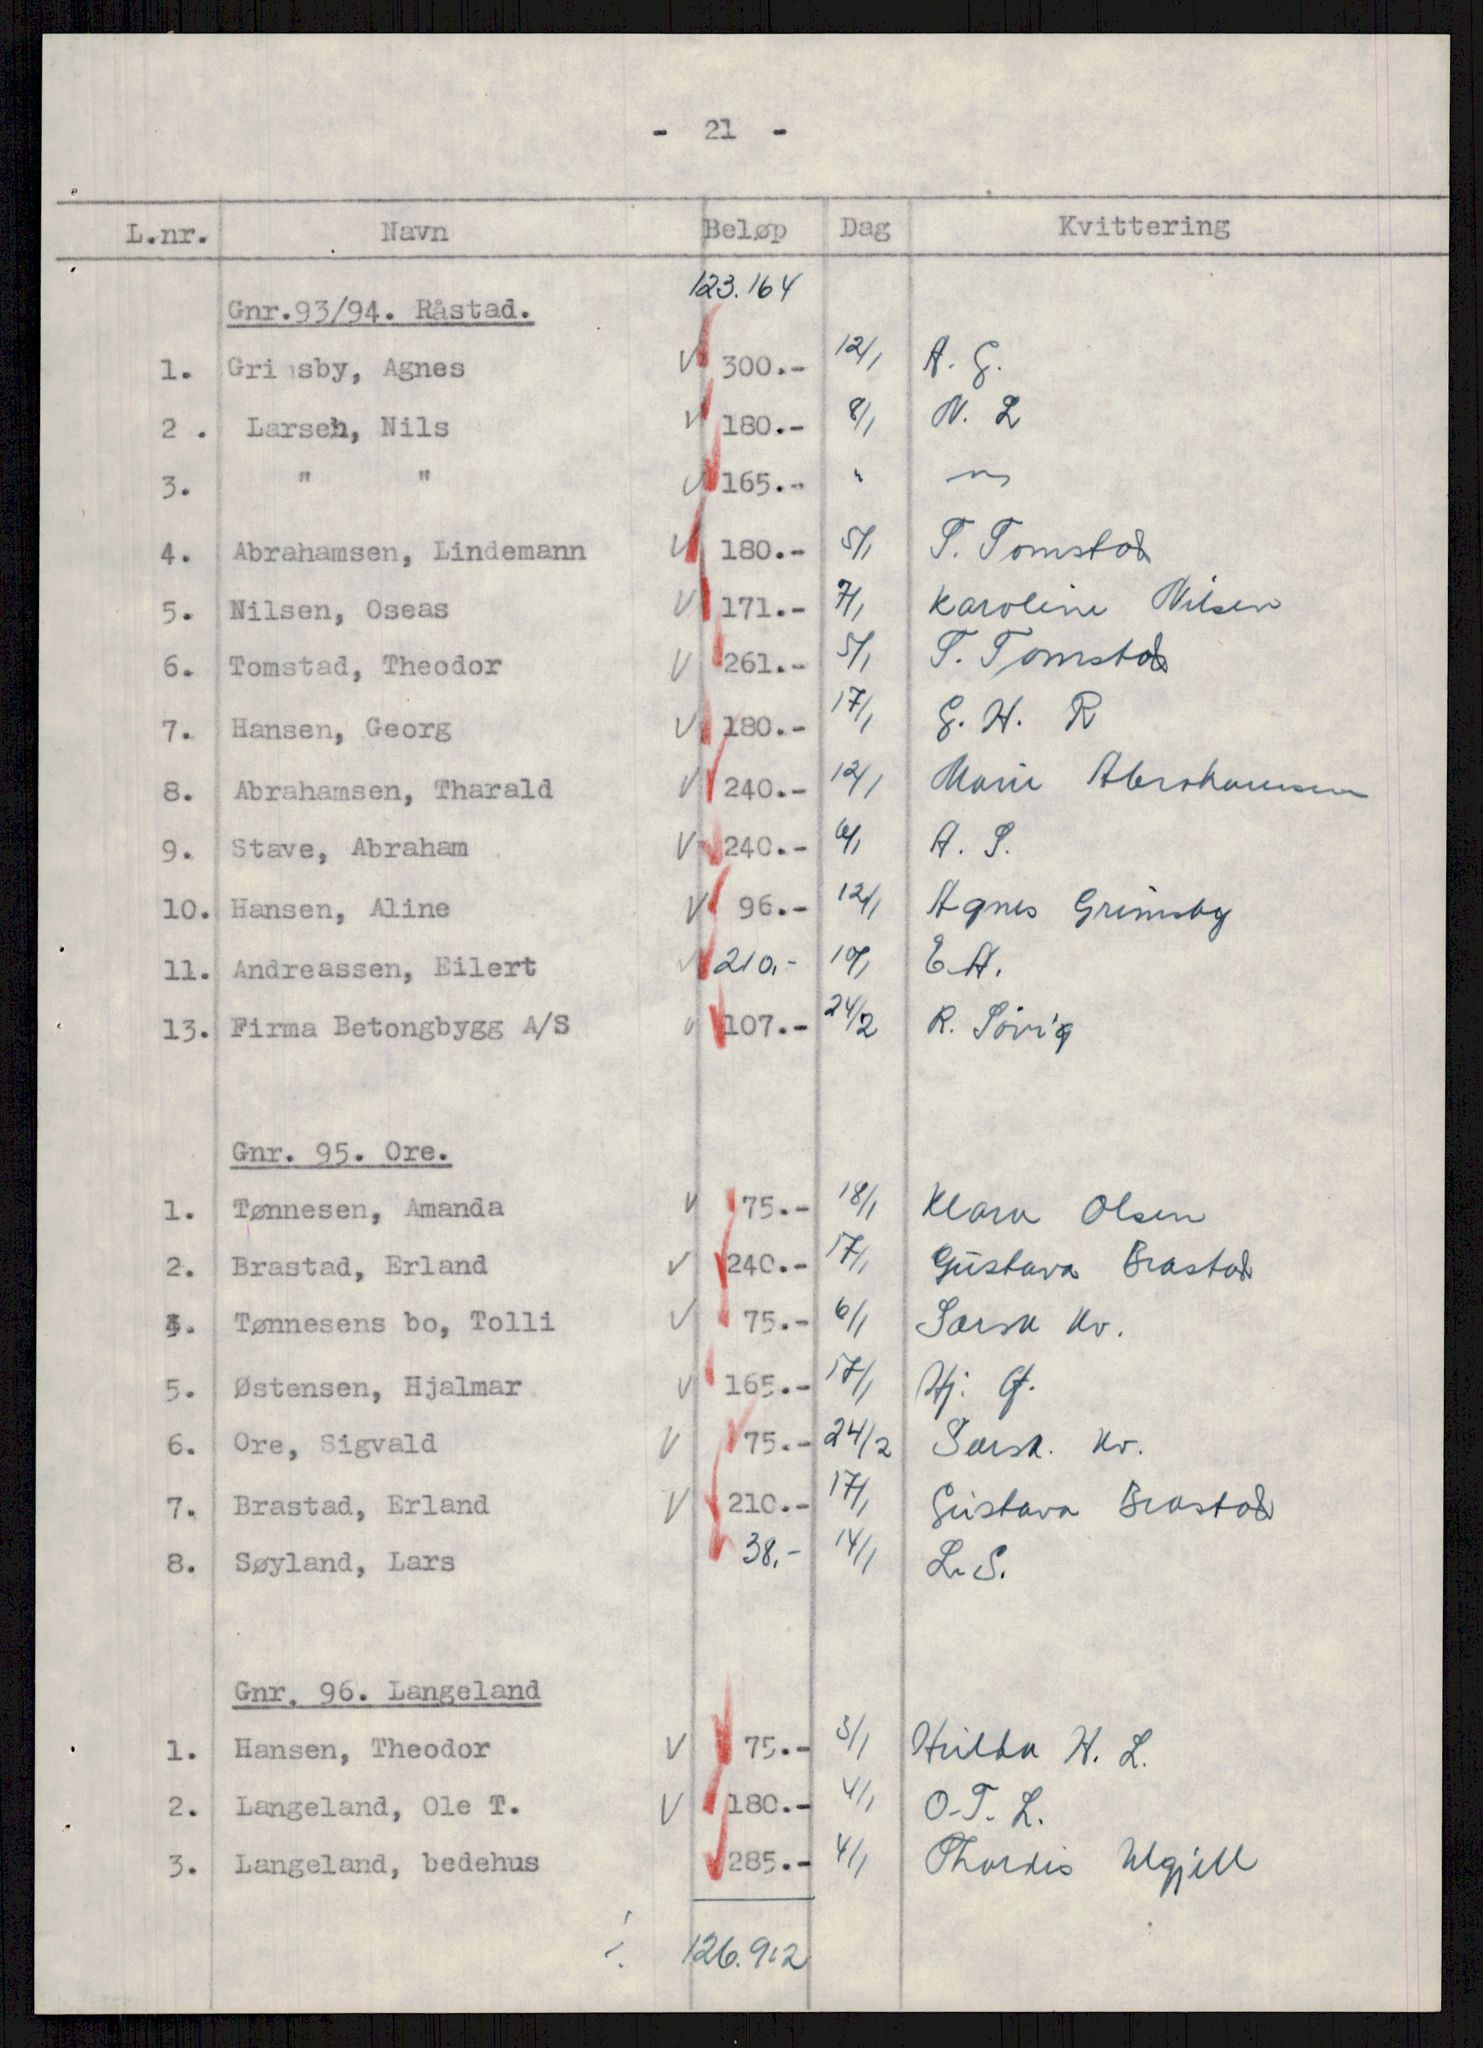 - 21 -
L.nr. Navn Beløp Dag Kvittering
123.164
Gnr.93/94. Råstad.
1. Grimsby, Agnes V 300.- 12/1 A. G.
2. Larsen, Nils V 180.- 8/1 N. L
3. " " V 165.- "
4. Abrahamsen, Lindemann V 180.- 5/1 T. Tomstad
5. Nilsen, Oseas V 171.- 7/1 Karoline Nilsen
6. Tomstad, Theodor V 261.- 5/1 T. Tomstad
7. Hansen, Georg V 180.- 17/1 G. H. R
8. Abrahamsen, Tharald V 240.- 12/1 Marie Abrahamsen
9. Stave, Abraham V 240.- 6/1 A. S.
10. Hansen, Aline V 96.- 12/1 Agnes Grimsby
11. Andreassen, Eilert V 210,- 10/1 E A.
13. Firma Betongbygg A/S V 107.- 24/2 R. Sövig
Gnr. 95. Ore.
1. Tønnesen, Amanda V 75.- 18/1 Klara Olsen
2. Brastad, Erland V 240.- 17/1 Gustava Brastad
Tønnesens bo, Tolli V 75.- 6/1 Særsk Kv.
5. Østensen, Hjalmar V 165.- 17/1 Hj. Ø.
6. Ore, Sigvald V 75.- 24/2 Særsk. Kv.
7. Brastad, Erland V 210.- 17/1 Gustava Brastad
8. Søyland, Lars 38,- 14/1 L. S.
Gnr. 96. Langeland
1. Hansen, Theodor V 75.- 3/1 Hilda H. L.
2. Langeland, Ole T. V 180.- 4/1 O. T. L.
3. Langeland, bedehus 285.- 4/1 Thordis Ulgjell
126.912